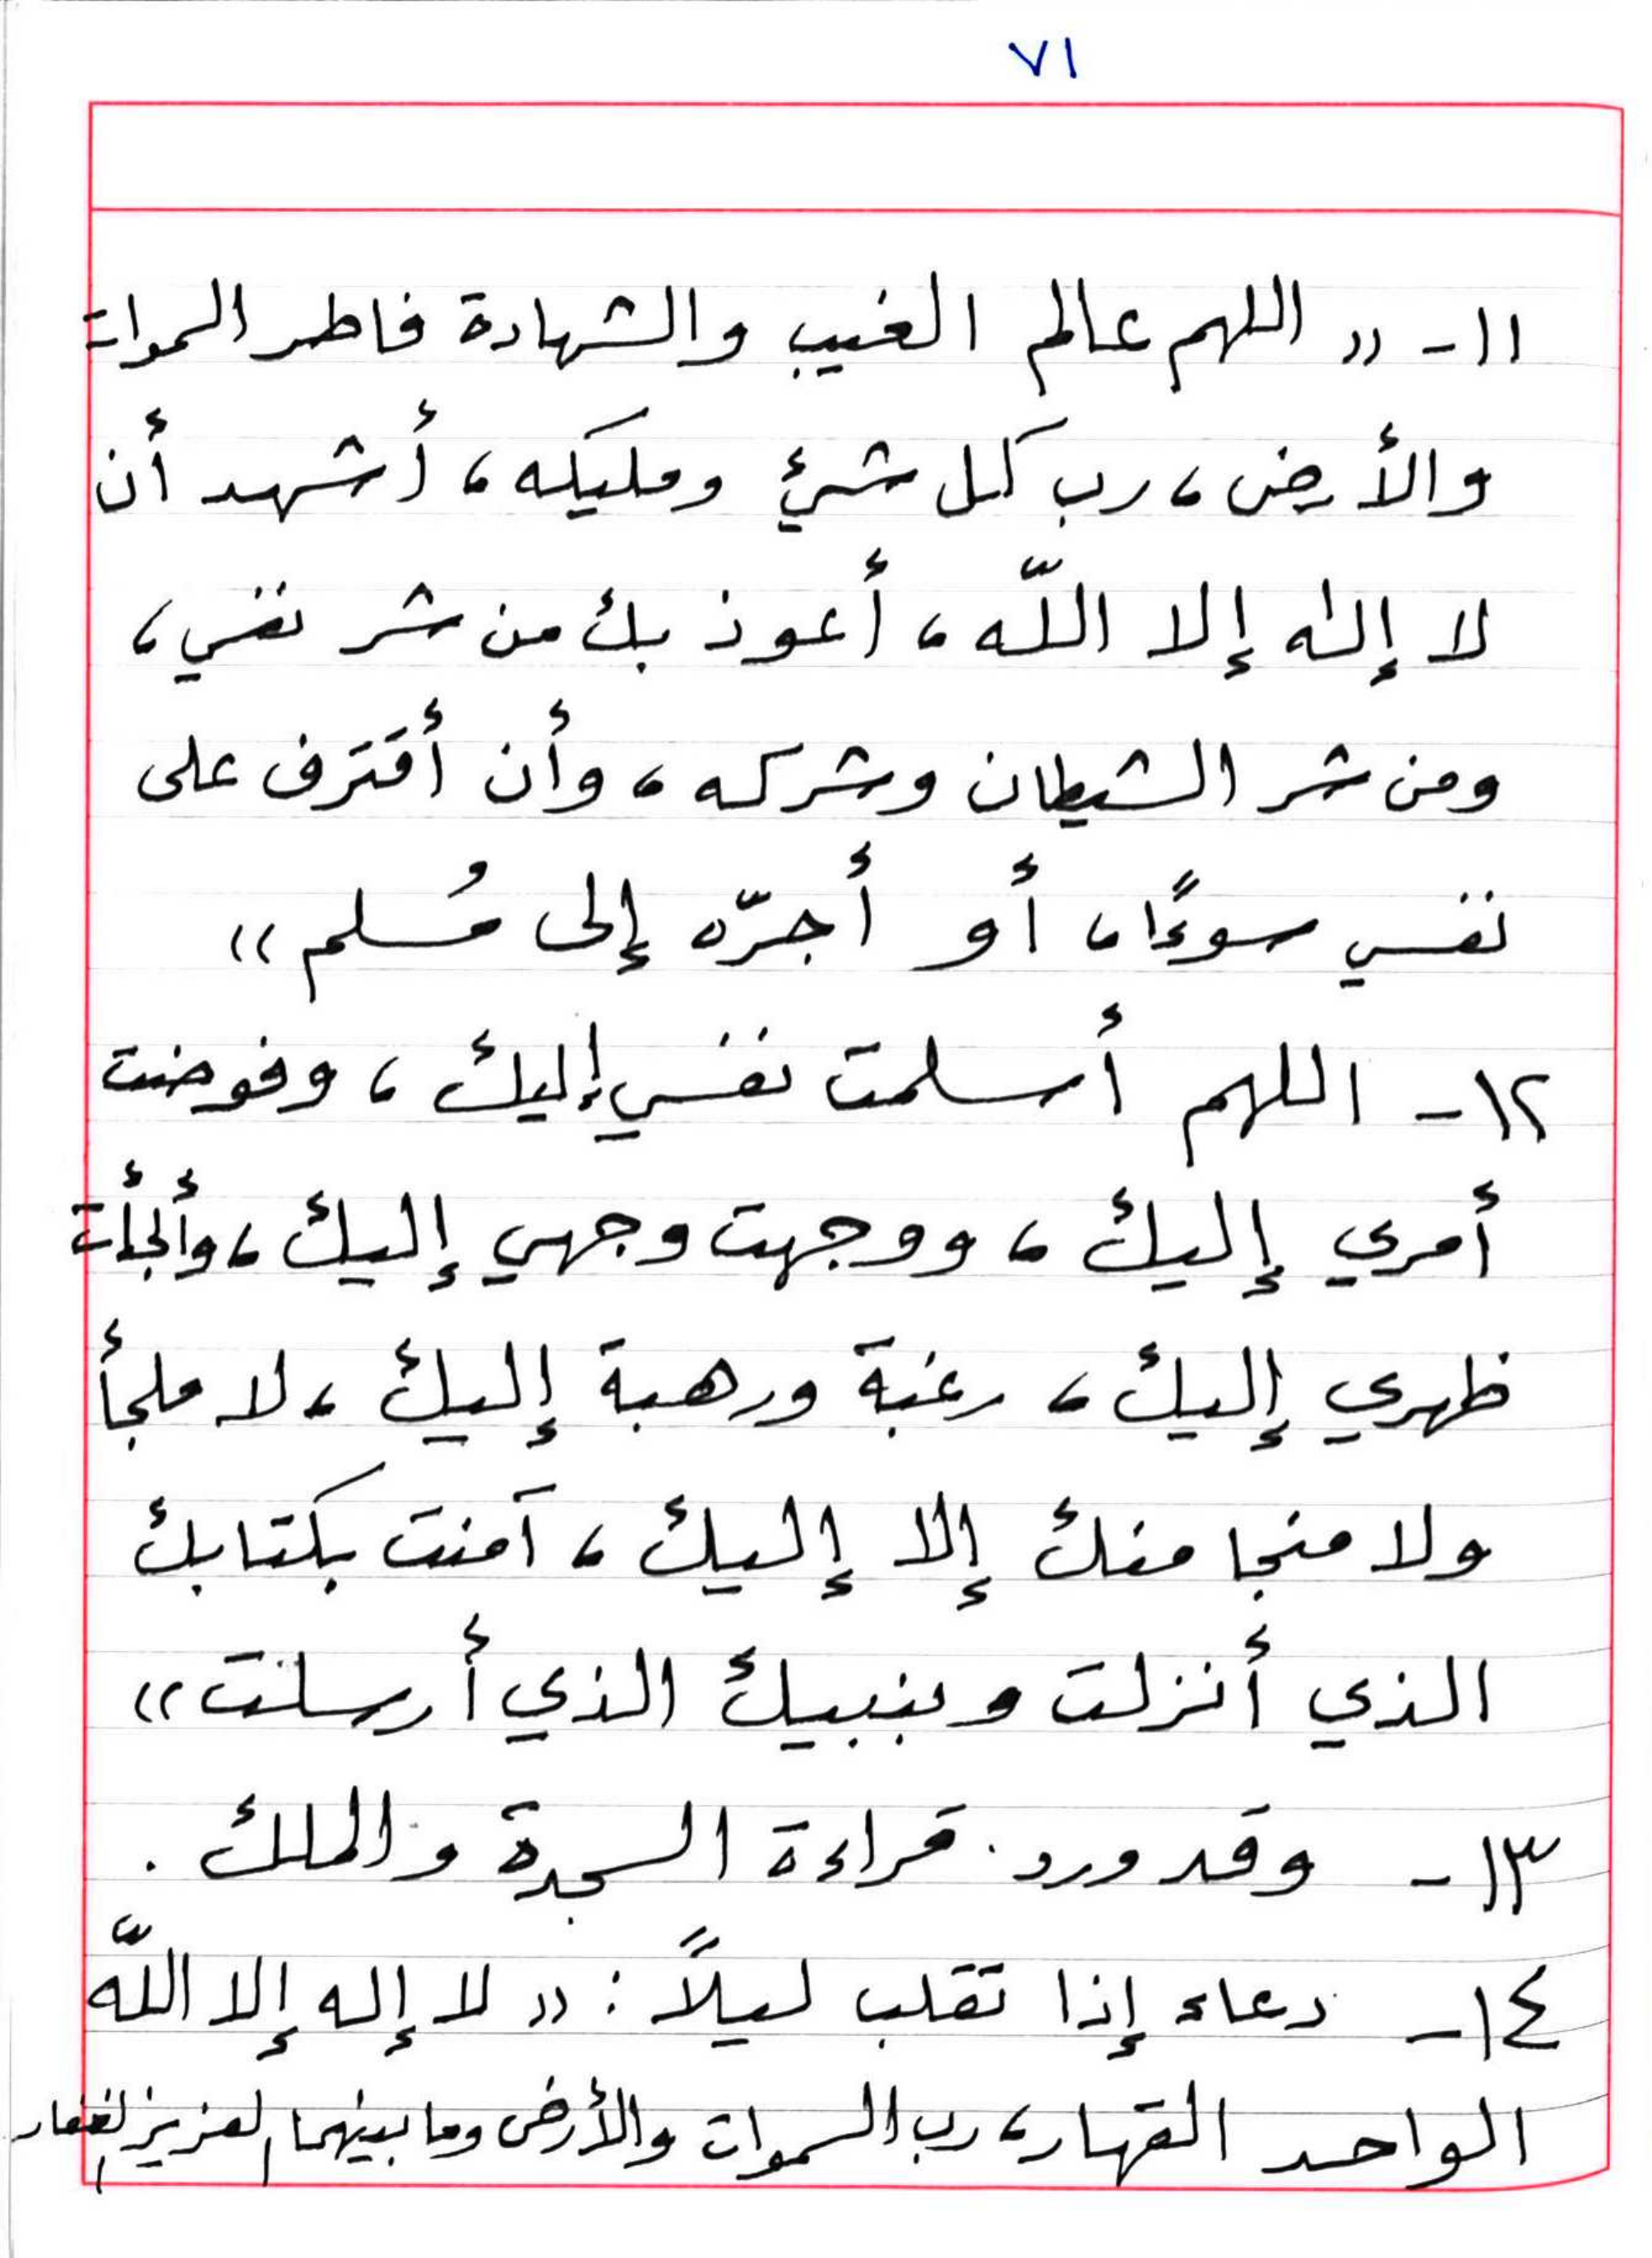 ٧١
١١- «اللهم عالم الغيب والشهادة فاطر السموات
والأرض، رب كل شيئ ومليكه، أشهد أن
لا إله إلا اللّه، أعوذ بك من شر نفسي،
ومن شر الشيطان وشركه، وأن أقترف على
نفسي سوءًا، أو أجرّه إلى مُسلم»
١٢- اللهم أسلمت نفسي إليك، وفوضت
أمري إليك، ووجهت وجهي إليك، وألجأت
ظهري إليك، رغبة ورهبة إليك، لا ملجأ
ولا منجا منك إلا إليك، آمنت بكتابك
الذي أنزلت وبنبيك الذي أرسلت»
١٣- وقد ورد قراءة السجدة والملك.
١٤- دعاء إذا تقلب ليلًا: «لا إله إلا اللّه
الواحد القهار، رب السموات والأرض وما بينهما العزيز الغفار